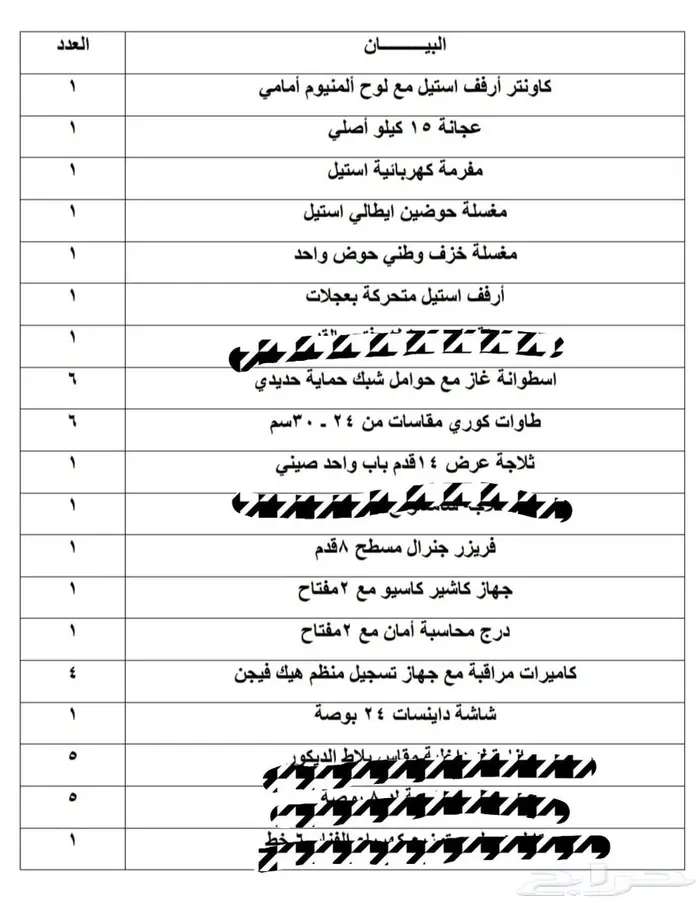 البيـــــــــان العدد
كاونتر أرفف استيل مع لوح ألمنيوم أمامي ١
عجانة ١٥ كيلو أصلي ١
مفرمة كهربائية استيل ١
مغسلة حوضين ايطالي استيل ١
مغسلة خزف وطني حوض واحد ١
أرفف استيل متحركة بعجلات ١
١
اسطوانة غاز مع حوامل شبك حماية حديدي ٦
طاوات كوري مقاسات من ٢٤ ـ ٣٠سم ٦
ثلاجة عرض ١٤قدم باب واحد صيني ١
١
فريزر جنرال مسطح ٨قدم ١
جهاز كاشير كاسيو مع ٢مفتاح ١
درج محاسبة أمان مع ٢مفتاح ١
كاميرات مراقبة مع جهاز تسجيل منظم هيك فيجن ٤
شاشة داينسات ٢٤ بوصة ١
مقاس بلاط الديكور ٥
بوصة ٥
٦ خط ١
حراج